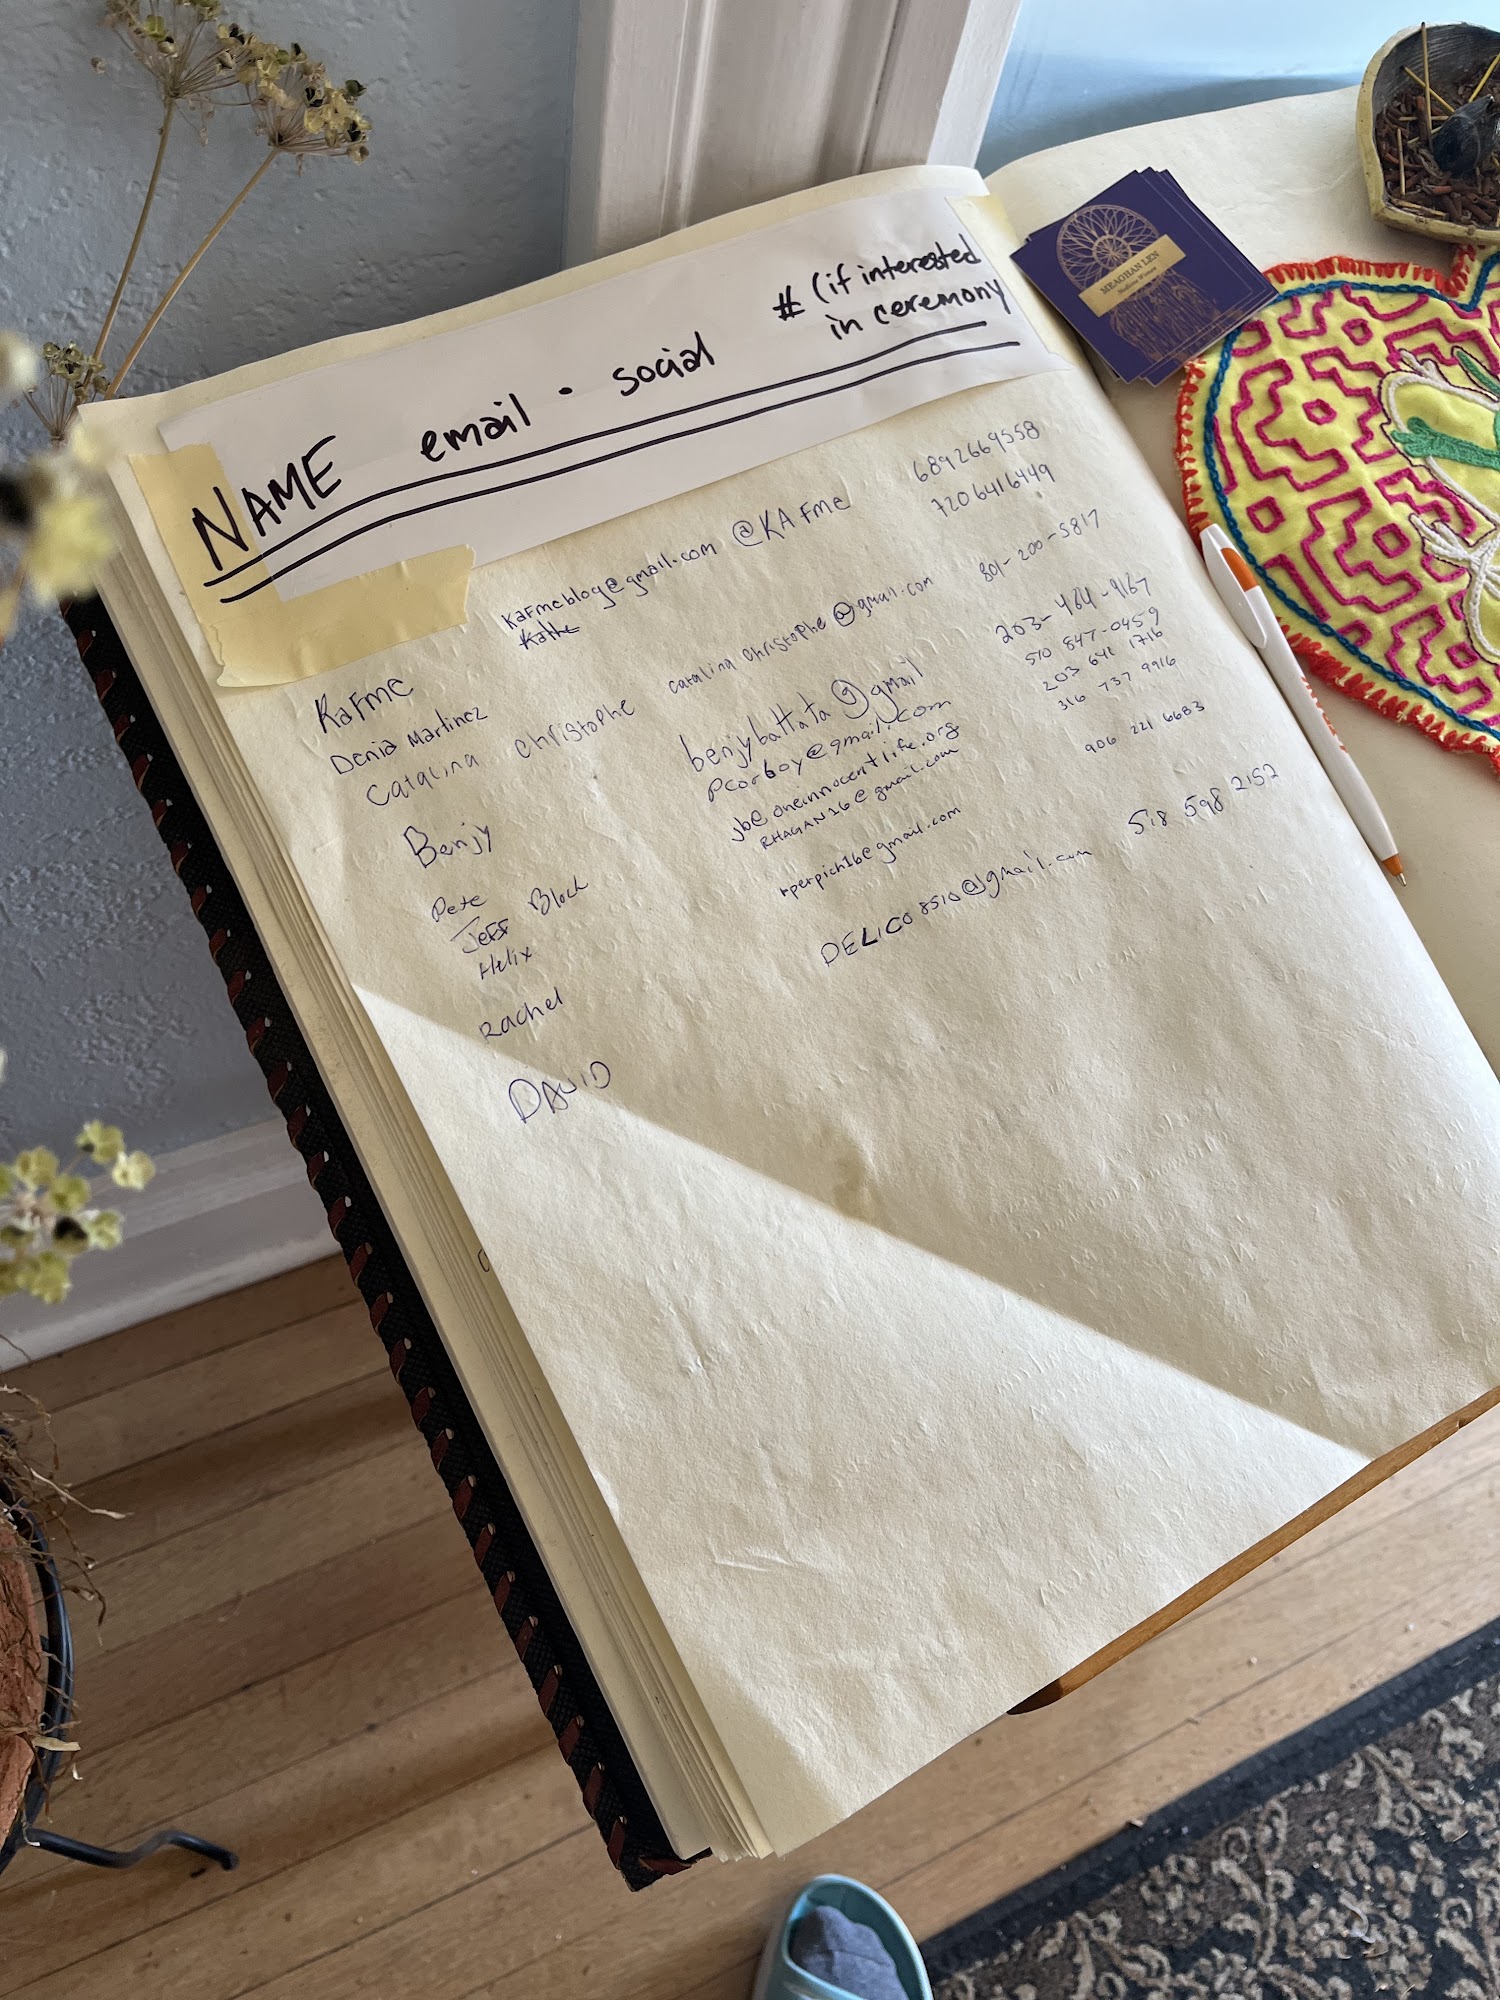 NAME email · social # (if interested
in ceremony
MEAGHAN LEN
Medicine Woman
KaFMe kaFMeblog@gmail.com @KAFMe 6892669558
Denia Martinez 7206416449
Catalina Christophe catalina christophe@gmail.com 801-200-5817
Benjy benjybattata@gmail 203-464-9167
Pete pcorboy@gmail.com 510 847-0459
Jeff Block jb@oneinnocentlife.org 203 641 1716
Helix RHAGAN16@gmail.com 316 737 9916
Rachel rperpich16@gmail.com 906 221 6683
DAVID DELICO8510@gmail.com 518 598 2152